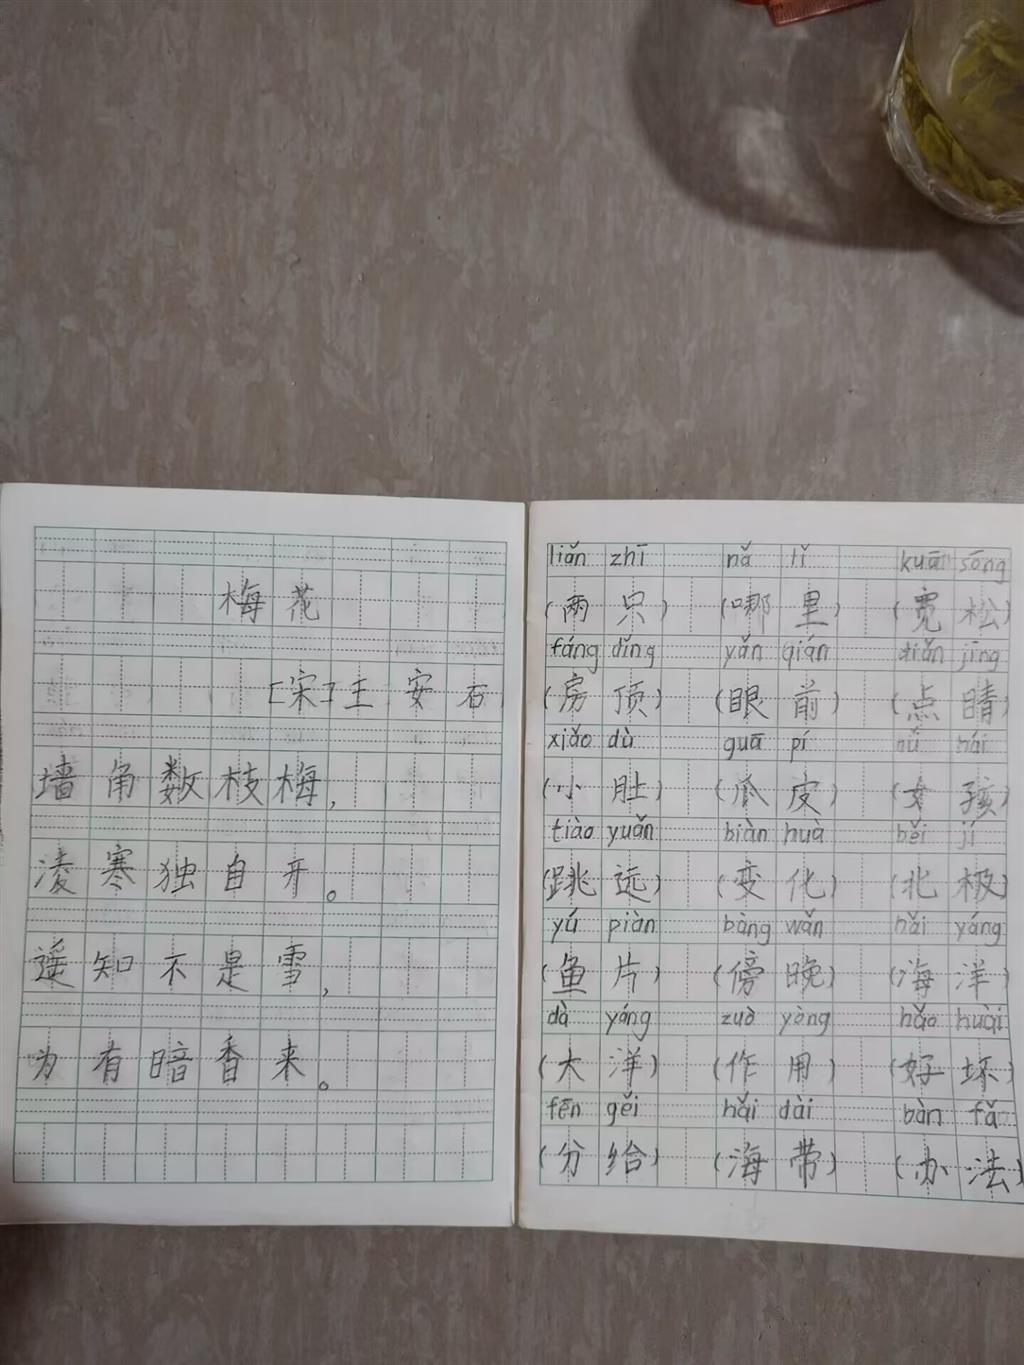 梅花
[宋]王安石
墙角数枝梅，
凌寒独自开。
遥知不是雪，
为有暗香来。
liǎn zhī nǎ lǐ kuān sōng
(两只) (哪里) (宽松)
fáng dǐng yǎn qián diǎn jīng
(房顶) (眼前) (点睛)
xiǎo dù guā pí nǚ hái
(小肚) (瓜皮) (女孩)
tiào yuǎn biàn huà běi jí
(跳远) (变化) (北极)
yú piàn bàng wǎn hǎi yáng
(鱼片) (傍晚) (海洋)
dà yáng zuò yòng hǎo huài
(大洋) (作用) (好坏)
fēn gěi hǎi dài bàn fǎ
(分给) (海带) (办法)